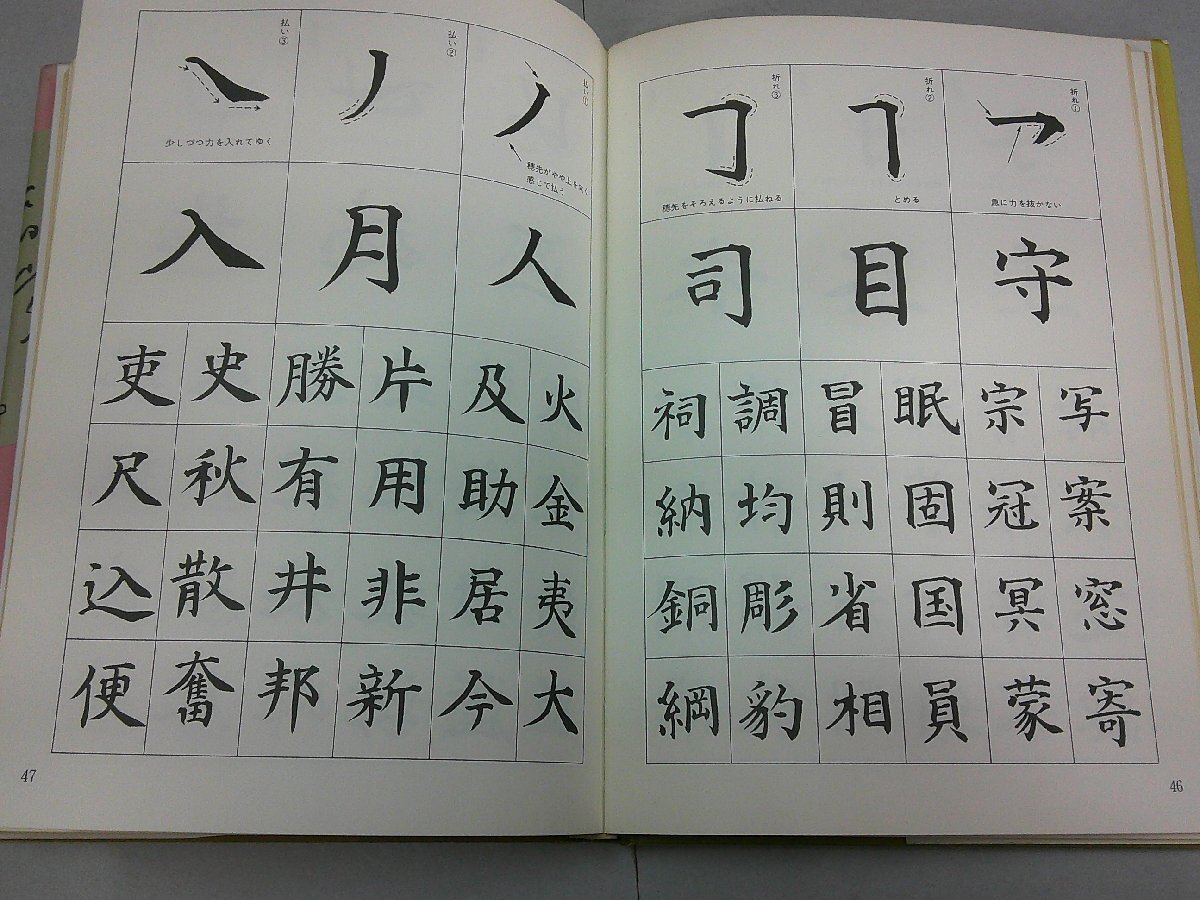 折れ①
急に力を抜かない
守
写 宗
案 冠
窓 冥
寄 蒙
折れ②
とめる
目
眠 冒
固 則
国 省
員 相
折れ③
穂先をそろえるように払ねる
司
調 祠
均 納
彫 銅
豹 綱
46
払い①
穂先がやや上を突く
感じで払う
人
火 及
金 助
夷 居
大 今
払い②
月
片 勝
用 有
非 井
新 邦
払い③
少しづつ力を入れてゆく
入
史 吏
秋 尺
散 込
奮 便
47